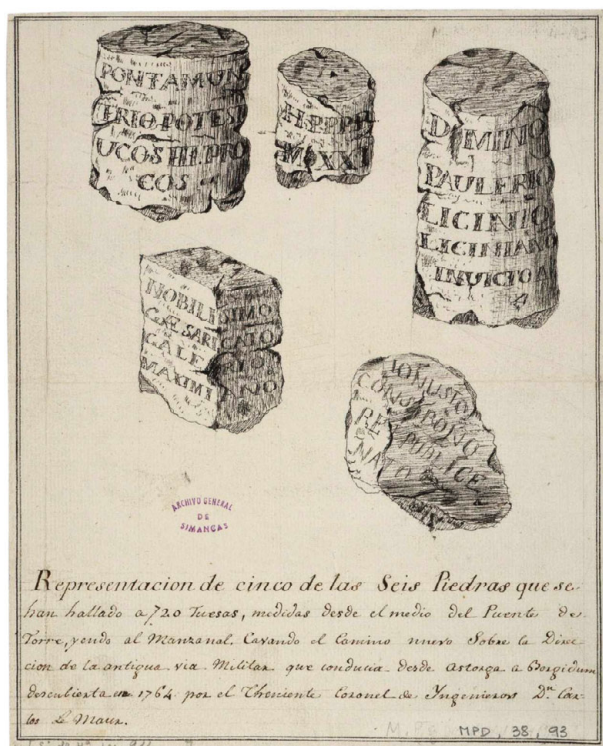 PONTAMUN
TRIO POTEST
UCOS III PRO
COS
H PPPR
M XXI
DOMINO
PAULERIO
LICINIO
LICINIANO
INVICTO A
NOBILISSIMO
CÆSARI CATO
GALE
MAXIMIANO
IONUSTO
CONST BONO
RE PUBLICE
NATO
ARCHIVO GENERAL
DE
SIMANCAS
Representacion de cinco de las Seis Piedras que se
han hallado a 720 Tuesas, medidas desde el medio del Puente de
Torre, yendo al Manzanal. Cavando el Camino nuevo Sobre la Direc-
cion de la antigua via Militar que conducia desde Astorga a Bergidum
descubierta en 1764 por el Theniente Coronel de Ingenieros Dn. Car-
los Le Maur.
MPD, 38, 93